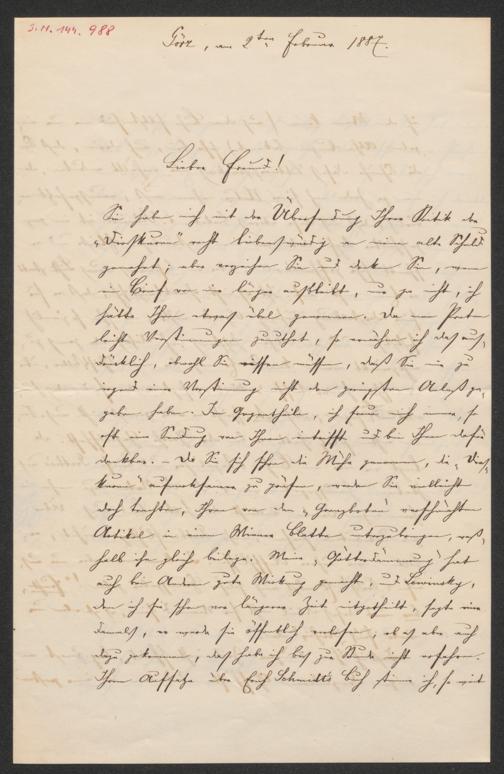 I.N. 144.988
Görz, am 2ten Februar 1887.
Lieber Freund!
Sie haben mich mit der Übersendung Ihrer Kritik der
„Dioskuren" recht liebenswürdig an meine alte Schuld
gemahnt; aber verzeihen Sie und denken Sie, wenn
ein Brief von mir länger ausbleibt, nur ja nicht, ich
hätte Ihnen etwas übel genommen. Da man Poeten
leicht Verstimmungen zumuthet, so erwähne ich das aus-
drücklich, obwohl Sie wissen müssen, daß Sie mir zu
irgend einer Verstimmung nicht den geringsten Anlaß ge-
geben haben. Im Gegentheile, ich freue mich immer, so
oft eine Sendung von Ihnen eintrifft und bin Ihnen dafür
dankbar. – Da Sie sich schon die Mühe genommen, die „Dios-
kuren" aufmerksamer zu prüfen, werden Sie vielleicht
doch trachten, Ihren von den „Grenzboten" verschmähten
Artikel in einem Wiener Blatte unterzubringen, weß-
halb ich ihn gleich beilege. Meine „Götterdämmerung" hat
auch bei Andern gute Wirkung gemacht, und Lewinsky,
dem ich sie schon vor längerer Zeit mitgetheilt, sagte mir
damals, er werde sie öffentlich vorlesen, ob es aber auch
dazu gekommen, das habe ich bis zur Stunde nicht erfahren.
Ihrem Aufsatze über Erich Schmidt's Buch stimme ich, so weit